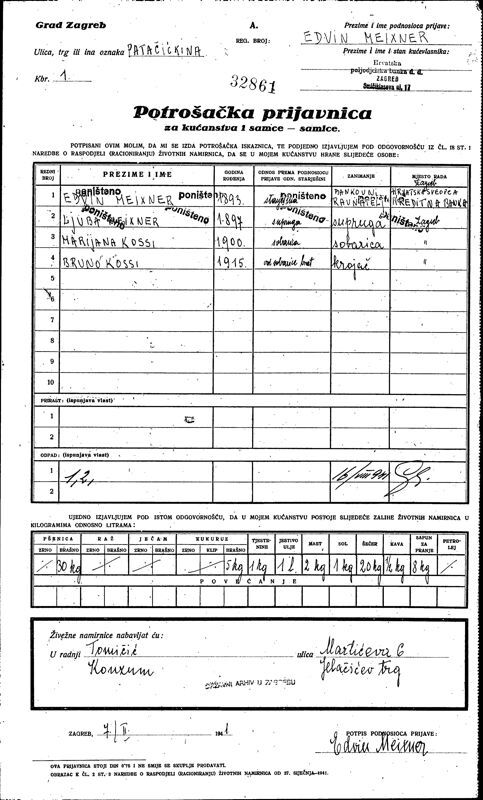 Grad Zagreb
A.
Prezime i ime podnosioca prijave:
REG. BROJ:
EDVIN MEIXNER
Ulica, trg ili ina oznaka PATAČIĆKINA
Prezime i ime i stan kućevlasnika:
Hrvatska
poljodjelska banka d. d.
ZAGREB
ul. 17
Kbr. 1.
32861
Potrošačka prijavnica
za kućanstva i samce — samice.
POTPISANI OVIM MOLIM, DA MI SE IZDA POTROŠAČKA ISKAZNICA, TE PODJEDNO IZJAVLJUJEM POD ODGOVORNOŠĆU IZ ČL. 18 ST. 1
NAREDBE O RASPODJELI (RACIONIRANJU) ŽIVOTNIH NAMIRNICA, DA SE U MOJEM KUĆANSTVU HRANE SLIJEDEĆE OSOBE:
REDNI BROJ PREZIME I IME GODINA ROĐENJA ODNOS PREMA PODNOSIOCU PRIJAVE ODN. STARJEŠINI ZANIMANJE MJESTO RADA
Zagreb
1 EDVIN MEIXNER 1893. starješina BANKOVNI RAVNATELJ HRVATSKA SVEOPĆA KREDITNA BANKA
poništeno poništeno poništeno
2 LJUBA MEIXNER 1897 supruga supruga Zagreb
poništeno poništeno poništeno
3 MARIJANA KOSSI 1900. sobarica sobarica "
4 BRUNO KOSSI 1915. od sobarice brat krojač "
5
6
7
8
9
10
PRIRAST: (ispunjava vlast)
1
2
OTPAD: (ispunjava vlast)
1 1,2, 16/VIII 941
2
UJEDNO IZJAVLJUJEM POD ISTOM ODGOVORNOŠĆU, DA U MOJEM KUĆANSTVU POSTOJE SLIJEDEĆE ZALIHE ŽIVOTNIH NAMIRNICA U
KILOGRAMIMA ODNOSNO LITRAMA:
PŠENICA RAŽ JEČAM KUKURUZ TJESTENINE JESTIVO ULJE MAST SOL ŠEĆER KAVA SAPUN ZA PRANJE PETROLEJ
ZRNO BRAŠNO ZRNO BRAŠNO ZRNO BRAŠNO ZRNO KLIP BRAŠNO
30 kg 5 kg 1 kg 1 l. 2 kg 1 kg 20 kg ½ kg 8 kg
POVEĆANJE
Živežne namirnice nabavljat ću:
U radnji Tomičić ulica Martićeva 6
Konzum Jelačićev trg
DRŽAVNI ARHIV U ZAGREBU
ZAGREB, 7/II 1941
POTPIS PODNOSIOCA PRIJAVE:
Edvin Meixner
OVA PRIJAVNICA STOJI DIN 0·75 I NE SMIJE SE SKUPLJE PRODAVATI.
OBRAZAC K ČL. 2 ST. 3 NAREDBE O RASPODJELI (RACIONIRANJU) ŽIVOTNIH NAMIRNICA OD 27. SIJEČNJA 1941.